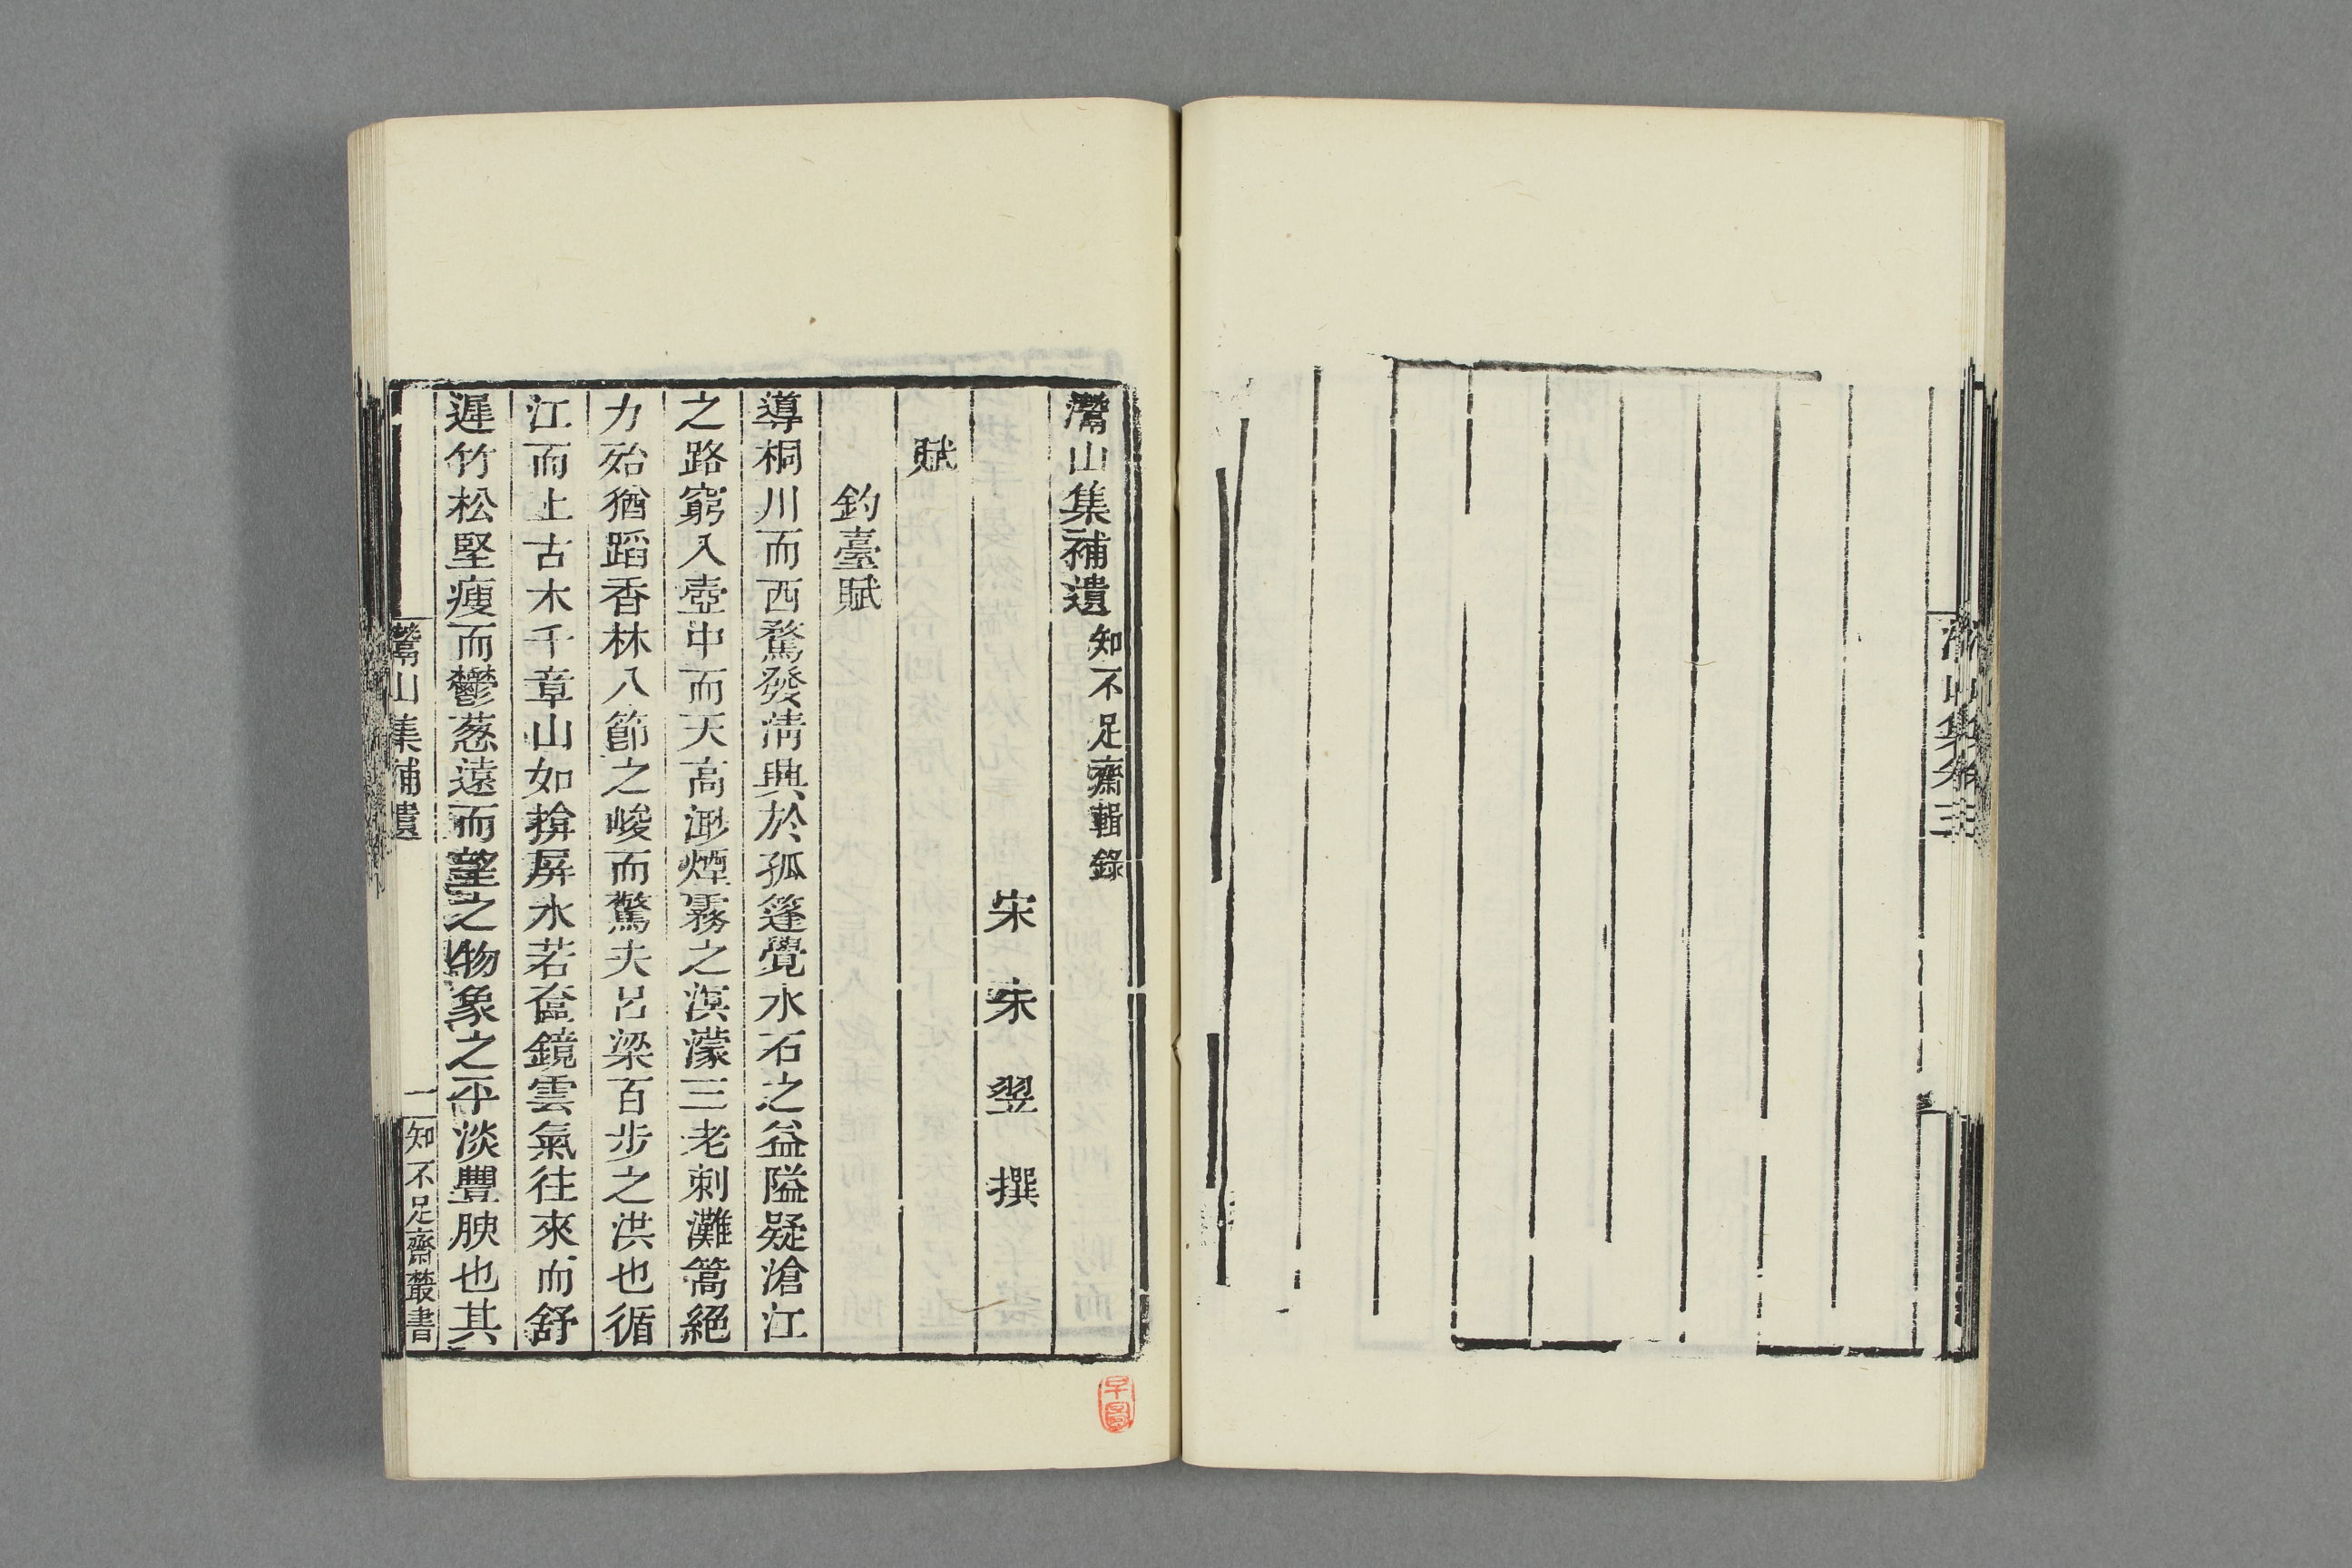 灊山集補遺 知不足齋輯錄
宋 朱翌 撰
賦
釣臺賦
導桐川而西騖發清興於孤篷覺水石之益隘疑滄江
之路窮入壺中而天高泖煙霧之溟濛三老刺灘篙絕
力殆猶蹈香林八節之峻而驚夫呂梁百步之洪也循
江而上古木千章山如揜屏水若奩鏡雲氣往來而舒
遲竹松堅瘦而鬱葱遠而望之物象之平淡豐腴也其
灊山集補遺
一
知不足齋叢書